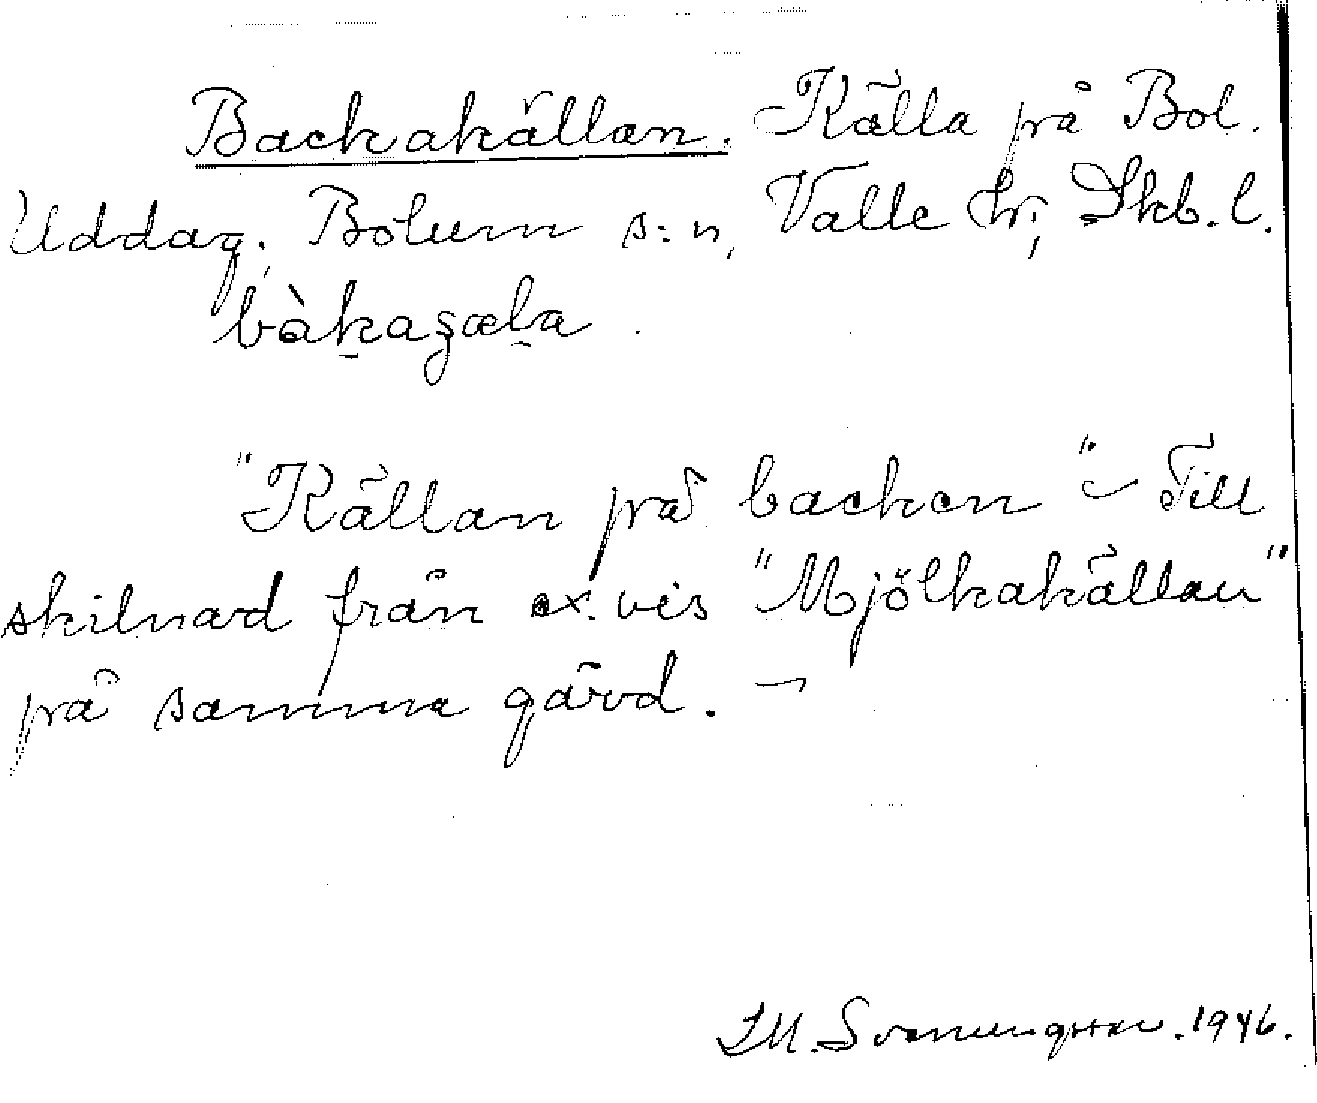 Backakällan. Källa på Bol.
Uddag. Bolum s:n, Valle hr, Skb.l.
bàkaʒæla.
"Källan på backen" - Till
skilnard från ex.vis "Mjölkakällan"
på samma gård. -
I.M. Svenungsson. 1946.